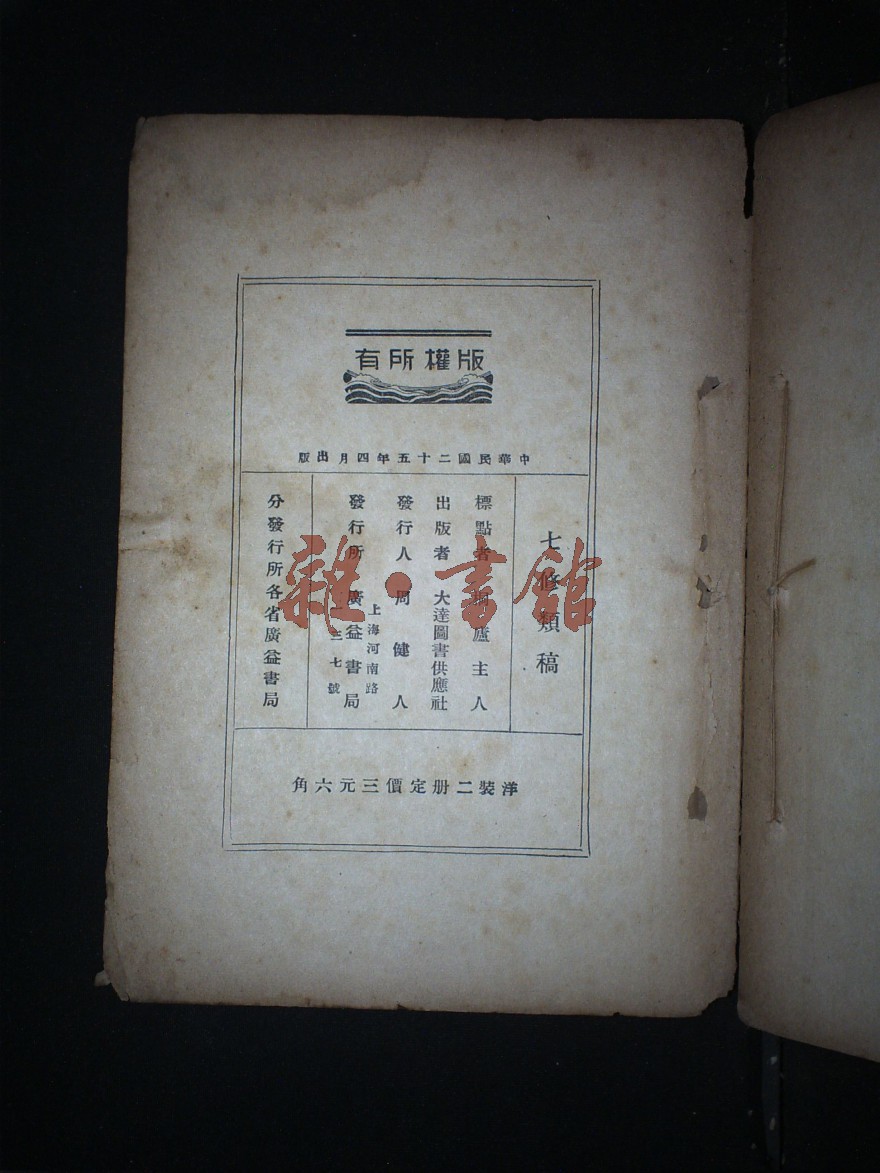 版權所有
中華民國二十五年四月出版
七修類稿
標點者 廬主人
出版者 大達圖書供應社
發行人 周健人
上海河南路
發行所 廣益書局
一三七號
分發行所各省廣益書局
洋裝二册定價三元六角
雜·書館